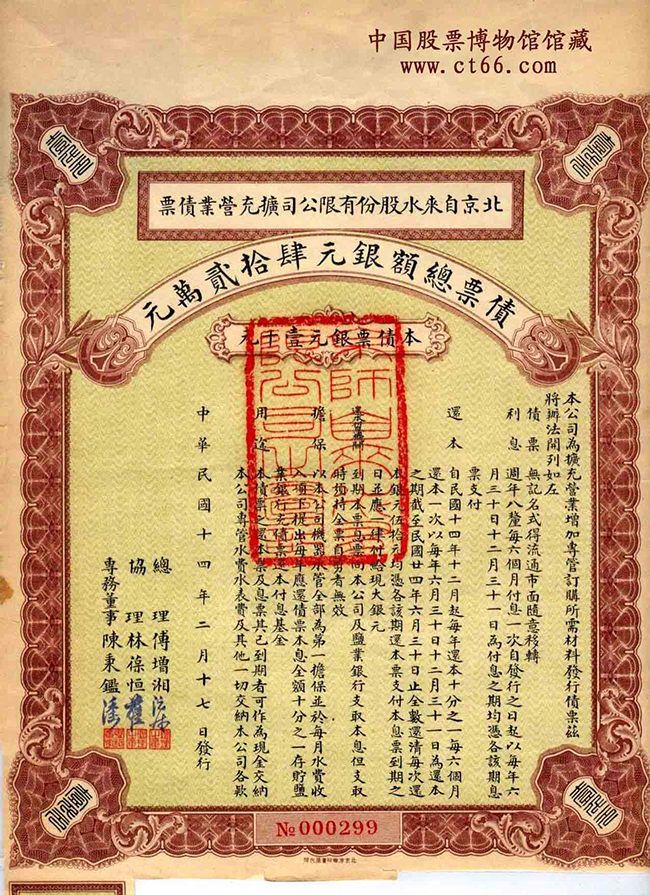 中国股票博物馆馆藏
www.ct66.com
北京自來水股份有限公司擴充營業債票
債票總額銀元肆拾貳萬元
本債票銀元壹千元
本公司為擴充營業增加專管訂購所需材料發行債票茲
將辦法開列如左
債票 無記名式得流通市面隨意移轉
利息 週年八釐每六個月付息一次自發行之日起以每年六
月三十日十二月三十一日為付息之期均憑各該期息
票支付
還本 自民國十四年十二月起每年還本十分之一每六個月
還本一次以每年六月三十日十二月三十一日為還本
之期截至民國廿四年六月三十日止全數還清每次還
本銀元伍拾元均憑各該期還本票支付本息票到期之
日並應一律付給現大銀元
到期本票息票向本公司及鹽業銀行支取本息但支取
時須持全票自剪者無效
擔保 以本公司機器水管全部為第一擔保並於每月水費收
入項下提出每年應還債票本息全額十分之一存貯鹽
業銀行充債票還本付息基金
用途 本債票之還本票及息票其已到期者可作為現金交納
本公司專管水費水表費及其他一切交納本公司各款
中華民國十四年二月十七日發行
總理傅增湘
協理林葆恒
專務董事陳秉鑑
№000299